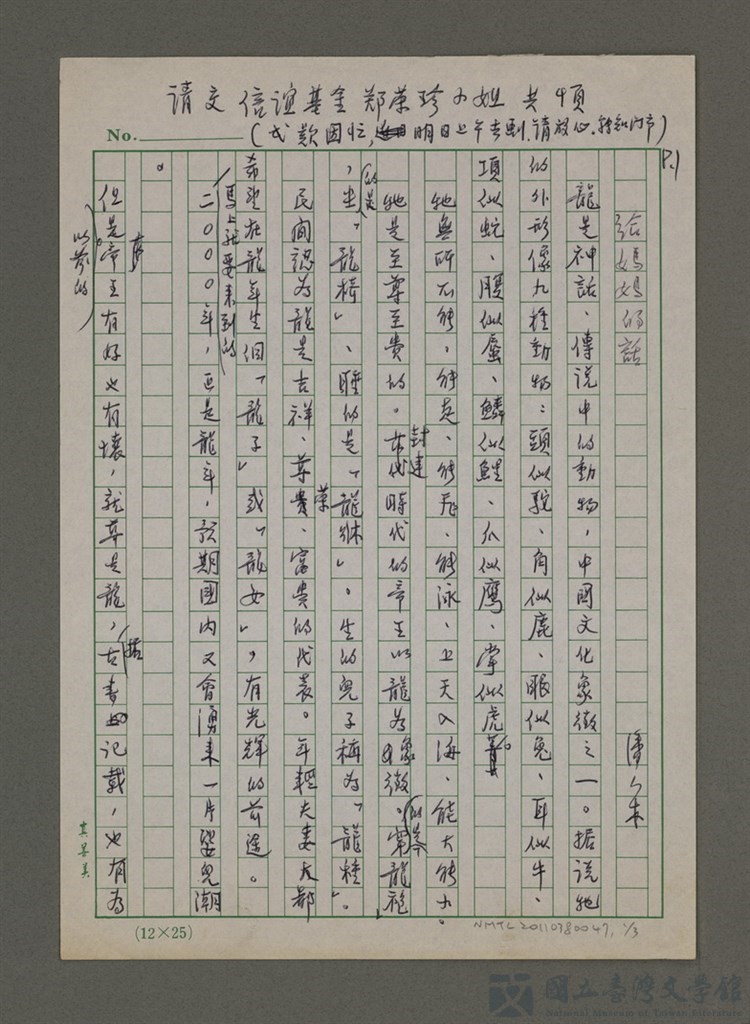 请交 信誼基金 郑荣珍小姐 共4頁
No.
(尤款因忙, 明日上午去剧.请放心.轉知门市)
P.1
給媽媽的話
潘人木
龍是神話、傳说中的動物，中國文化象徵之一。据说牠
的外形像九種動物：頭似駝、角似鹿、眼似兔、耳似牛、
項似蛇、腹似蜃、鱗似鯉、爪似鷹、掌似虎。
牠無所不能，能走、能飛、能泳、上天入海、能大能小。
牠是至尊至貴的。封建時代的帝王以龍為象徵。穿龍袍
，坐的是「龍椅」、睡的是「龍牀」。生的兒子稱為「龍種」。
民間認為龍是吉祥、尊榮、富貴的代表。年輕夫妻大都
希望在龍年生個「龍子」或「龍女」，有光輝的前途。
馬上就要來到的二000年，正是龍年，預期國內又會湧來一片嬰兒潮
。
但是帝王有好也有壞，就算是龍，古書記載，也有為
以前的
(12×25)
NMTL20110380047, 1/3
國立臺灣文學館
National Museum of Taiwan Literature